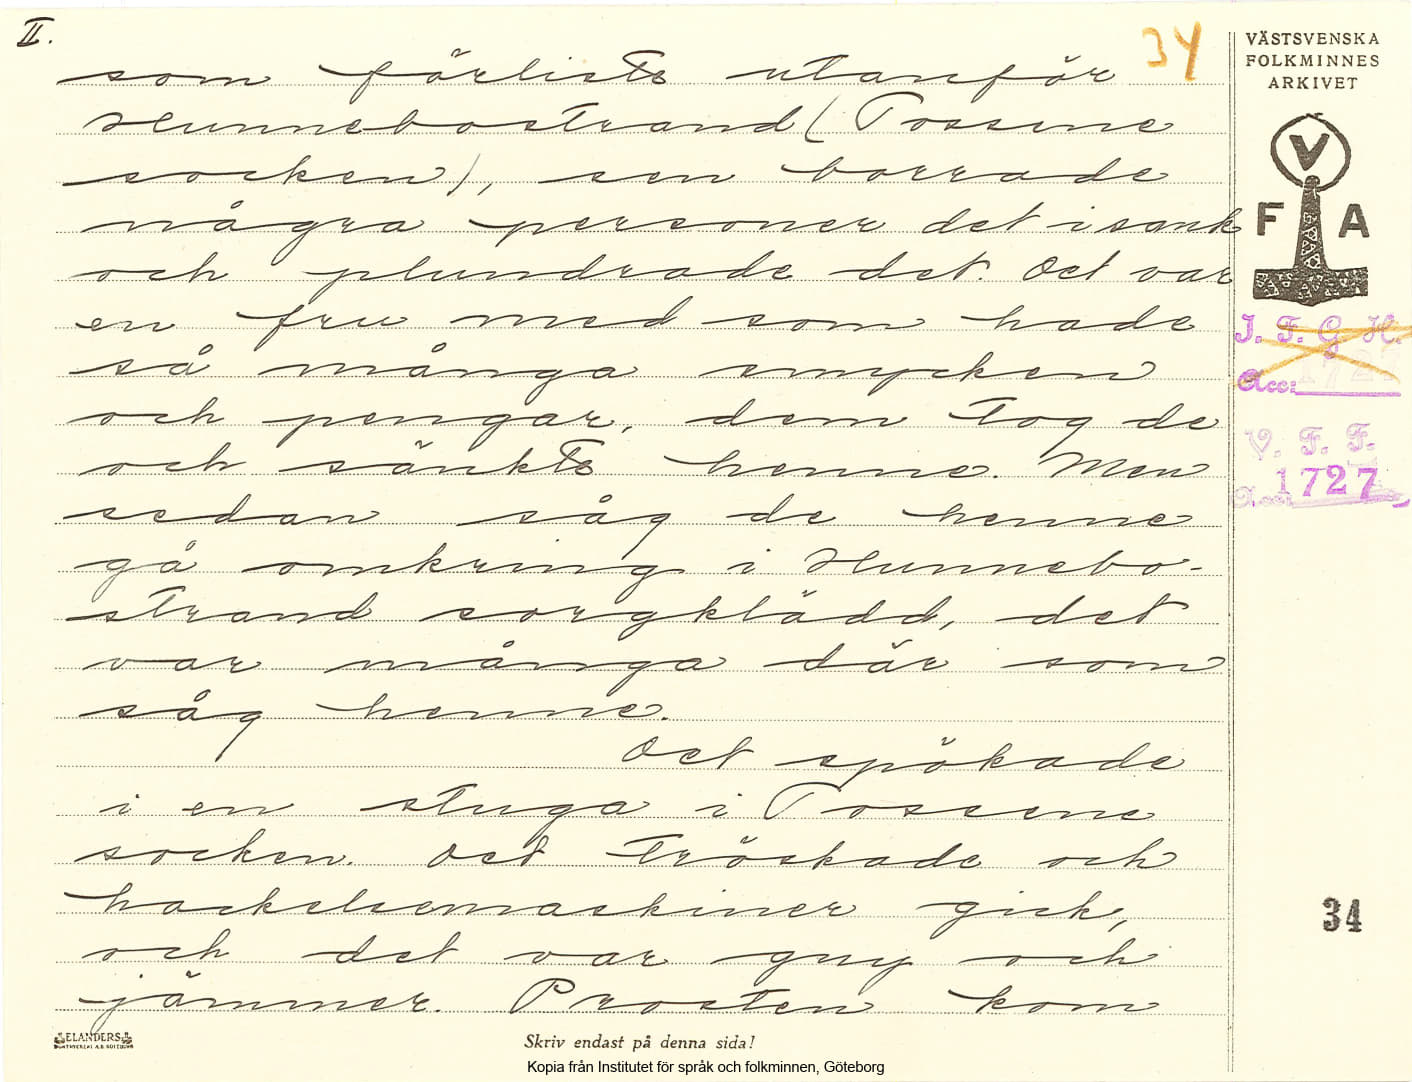 II.
34
som förlists utanför
Hunnebostrand (Tossene
socken), sen borrade
några personer det i sank
och plundrade det. Det var
en fru med som hade
så många smycken
och pengar, dem tog de
och sänkts henne. Men
sedan såg de henne
gå omkring i Hunnebo-
strand sorgklädd, det
var många där som
såg henne.
Det spökade
i en stuga i Tossene
socken. Det tröskade och
hackelsemaskiner gick,
och det var gny och
jämmer. Prosten kom
VÄSTSVENSKA
FOLKMINNES
ARKIVET
V
F A
I. F. G. H.
Acc: 1727
V. F. F.
Acc. 1727
34
ELANDERS
Skriv endast på denna sida!
Kopia från Institutet för språk och folkminnen, Göteborg